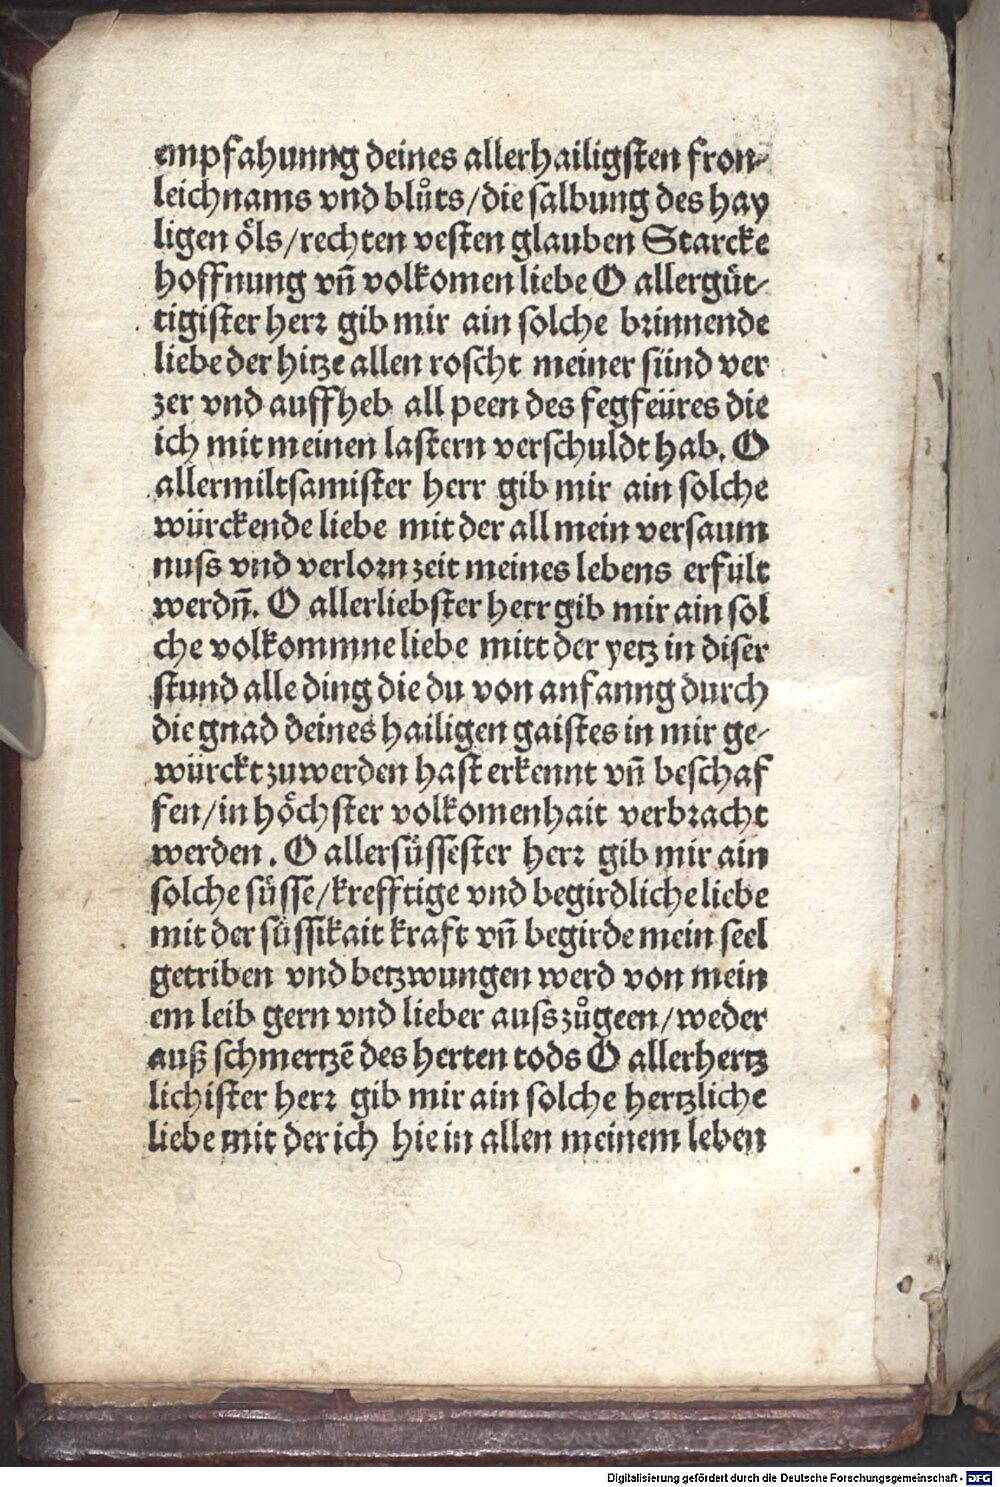 empfahunng deines allerhailigsten fron-
leichnams vnd blůts/die salbung des hay
ligen öls/rechten vesten glauben Starcke
hoffnung vn̄ volkomen liebe O allergüt-
tigister herr gib mir ain solche brinnende
liebe der hitze allen roscht meiner sünd ver
zer vnd auffheb all peen des fegfeüres die
ich mit meinen lastern verschuldt hab. O
allermiltsamister herr gib mir ain solche
würckende liebe mit der all mein versaum
nuss vnd verlorn zeit meines lebens erfült
werdn̄. O allerliebster herr gib mir ain sol
che volkommne liebe mitt der yetz in diser
stund alle ding die du von anfanng durch
die gnad deines hailigen gaistes in mir ge-
würckt zuwerden hast erkennt vn̄ beschaf
fen/in höchster volkomenhait verbracht
werden. O allersüssester herr gib mir ain
solche süsse/krefftige vnd begirdliche liebe
mit der süssikait kraft vn̄ begirde mein seel
getriben vnd betzwungen werd von mein
em leib gern vnd lieber ausszůgeen/weder
auß schmertzē des herten tods O allerhertz
lichister herr gib mir ain solche hertzliche
liebe mit der ich hie in allen meinem leben
Digitalisierung gefördert durch die Deutsche Forschungsgemeinschaft - DFG